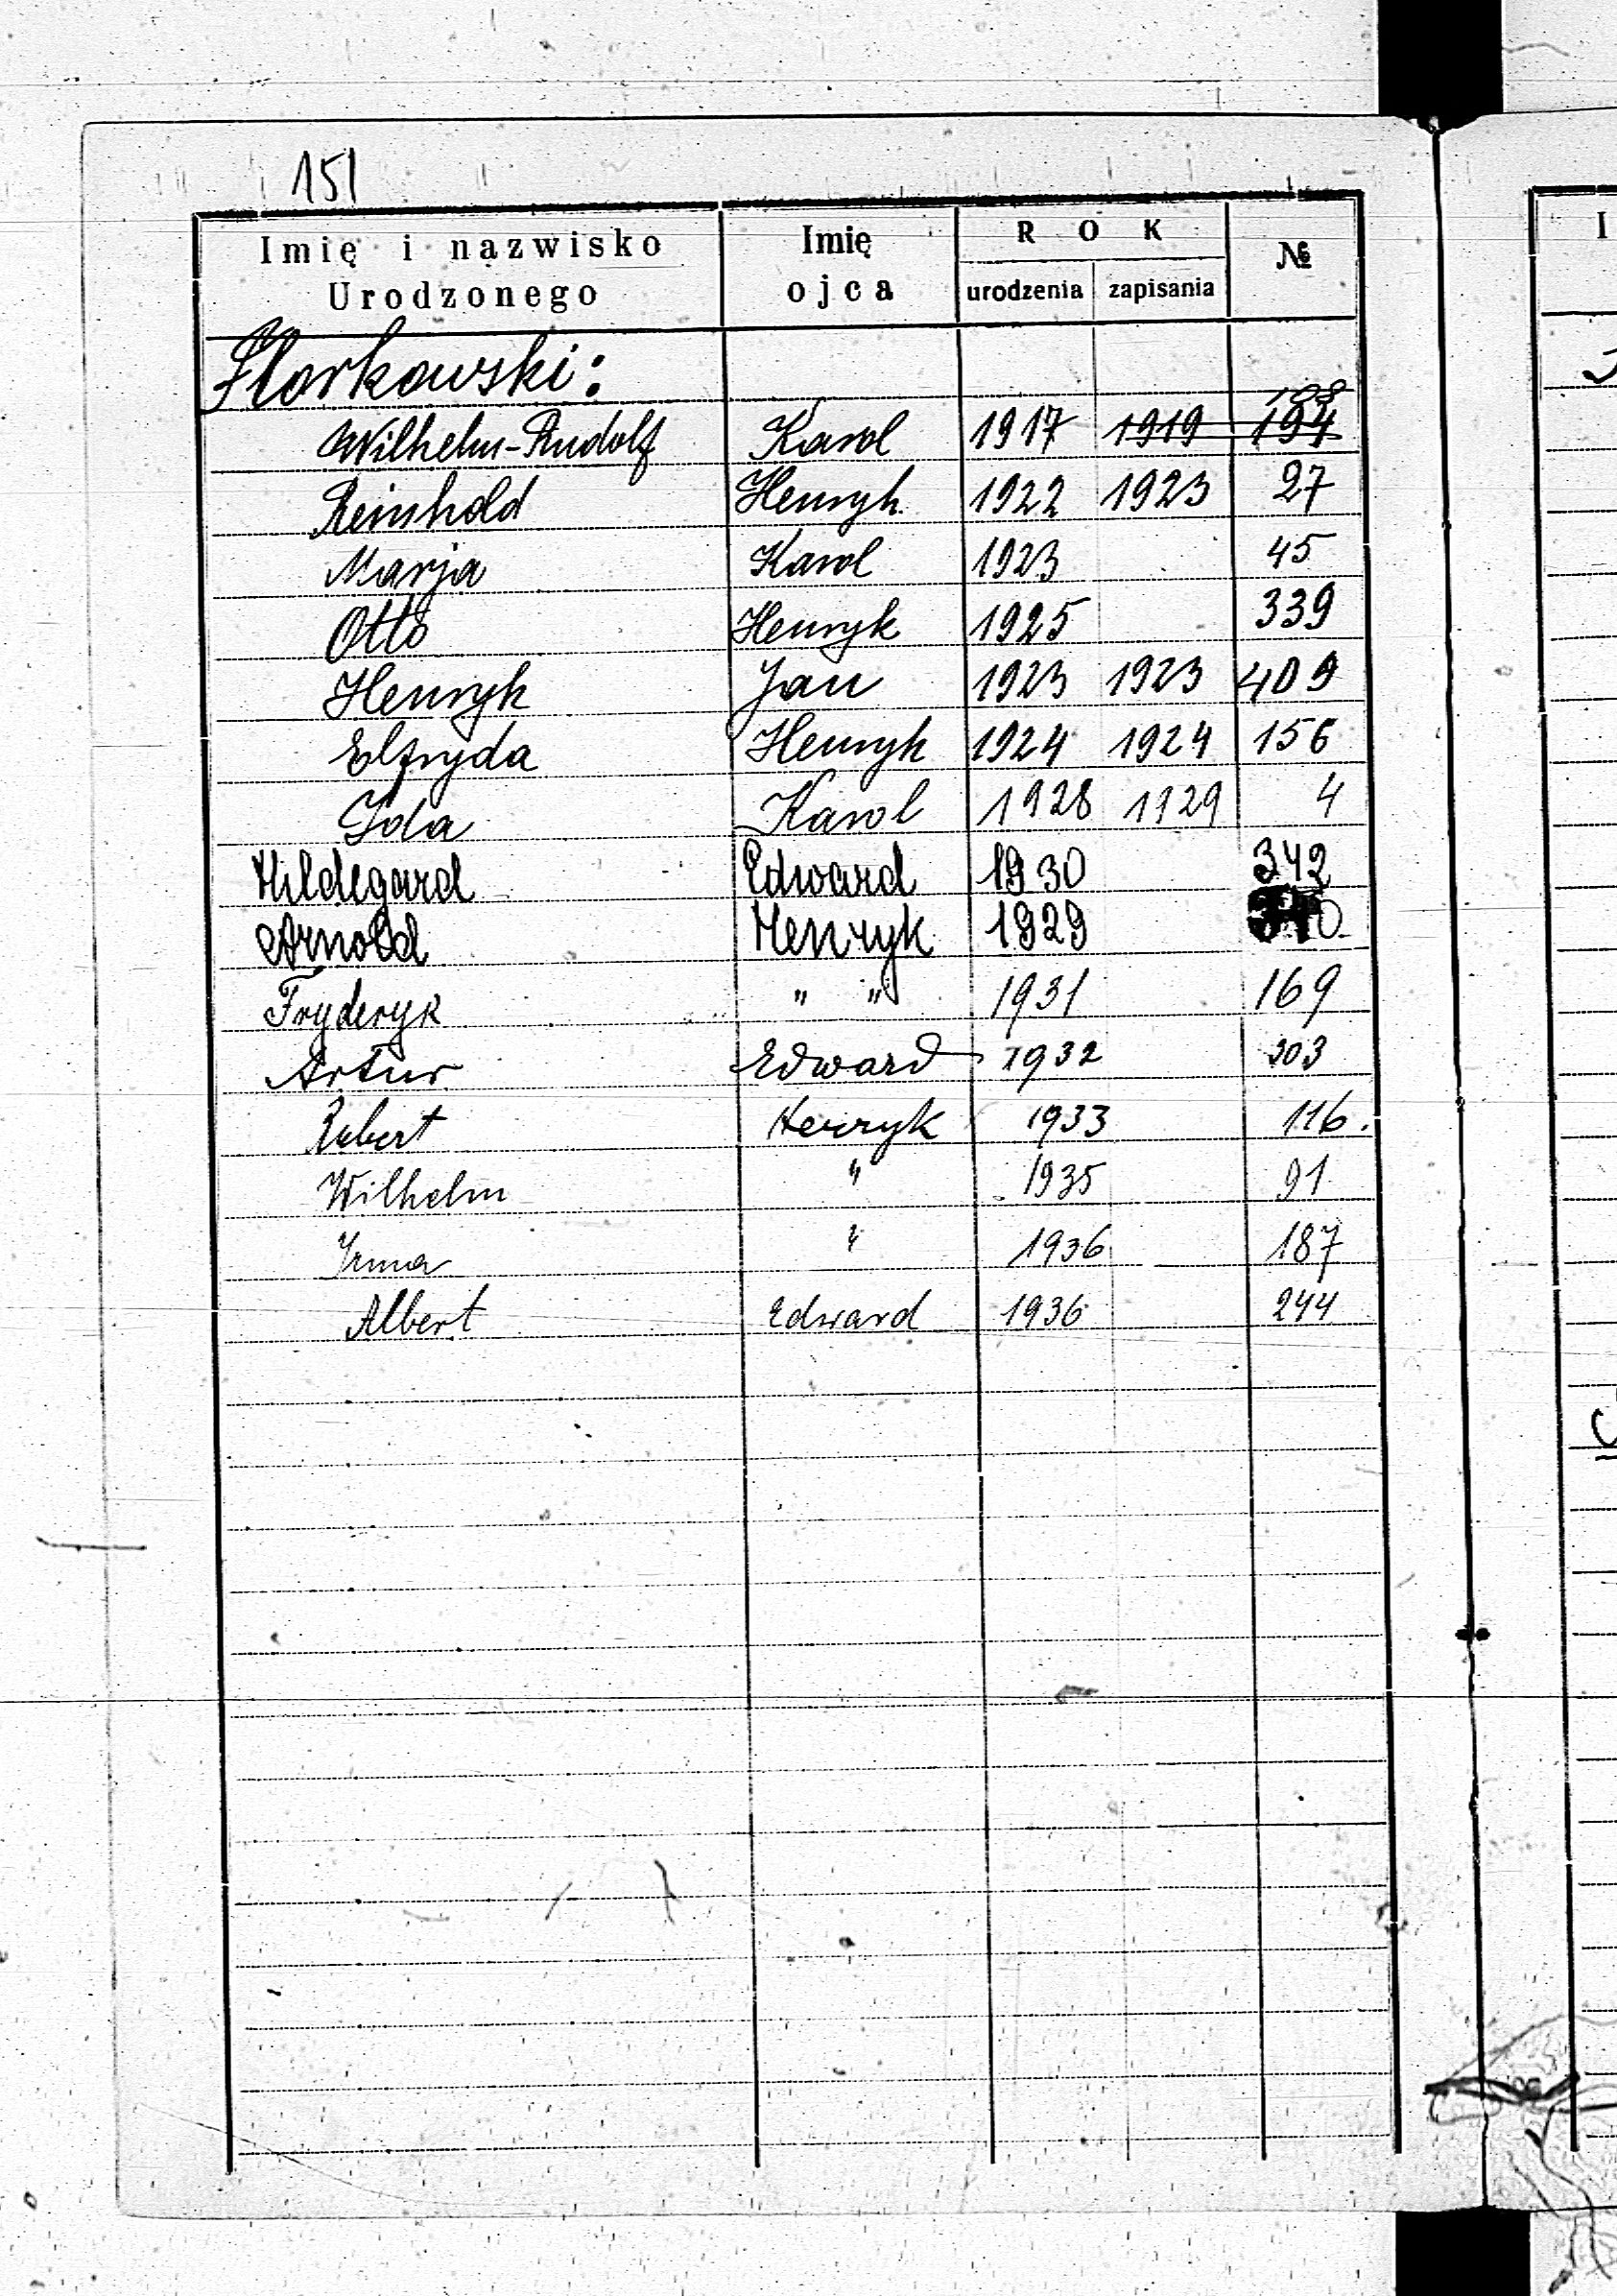 151
Imię i nazwisko Urodzonego Imię ojca ROK urodzenia zapisania №
Florkowski:
198
Wilhelm-Rudolf Karol 1917 1919 194
Reinhold Henryk 1922 1923 27
Marja Karol 1923 45
Otto Henryk 1925 339
Henryk Jan 1923 1923 409
Elfryda Henryk 1924 1924 156
Ida Karol 1928 1929 4
Hildegard Edward 1930 342
Arnold Henryk 1929
Fryderyk " " 1931 169
Artur Edward 1932 203
Robert Henryk 1933 116.
Wilhelm " 1935 91
Irma " 1936 187
Albert Edward 1936 244